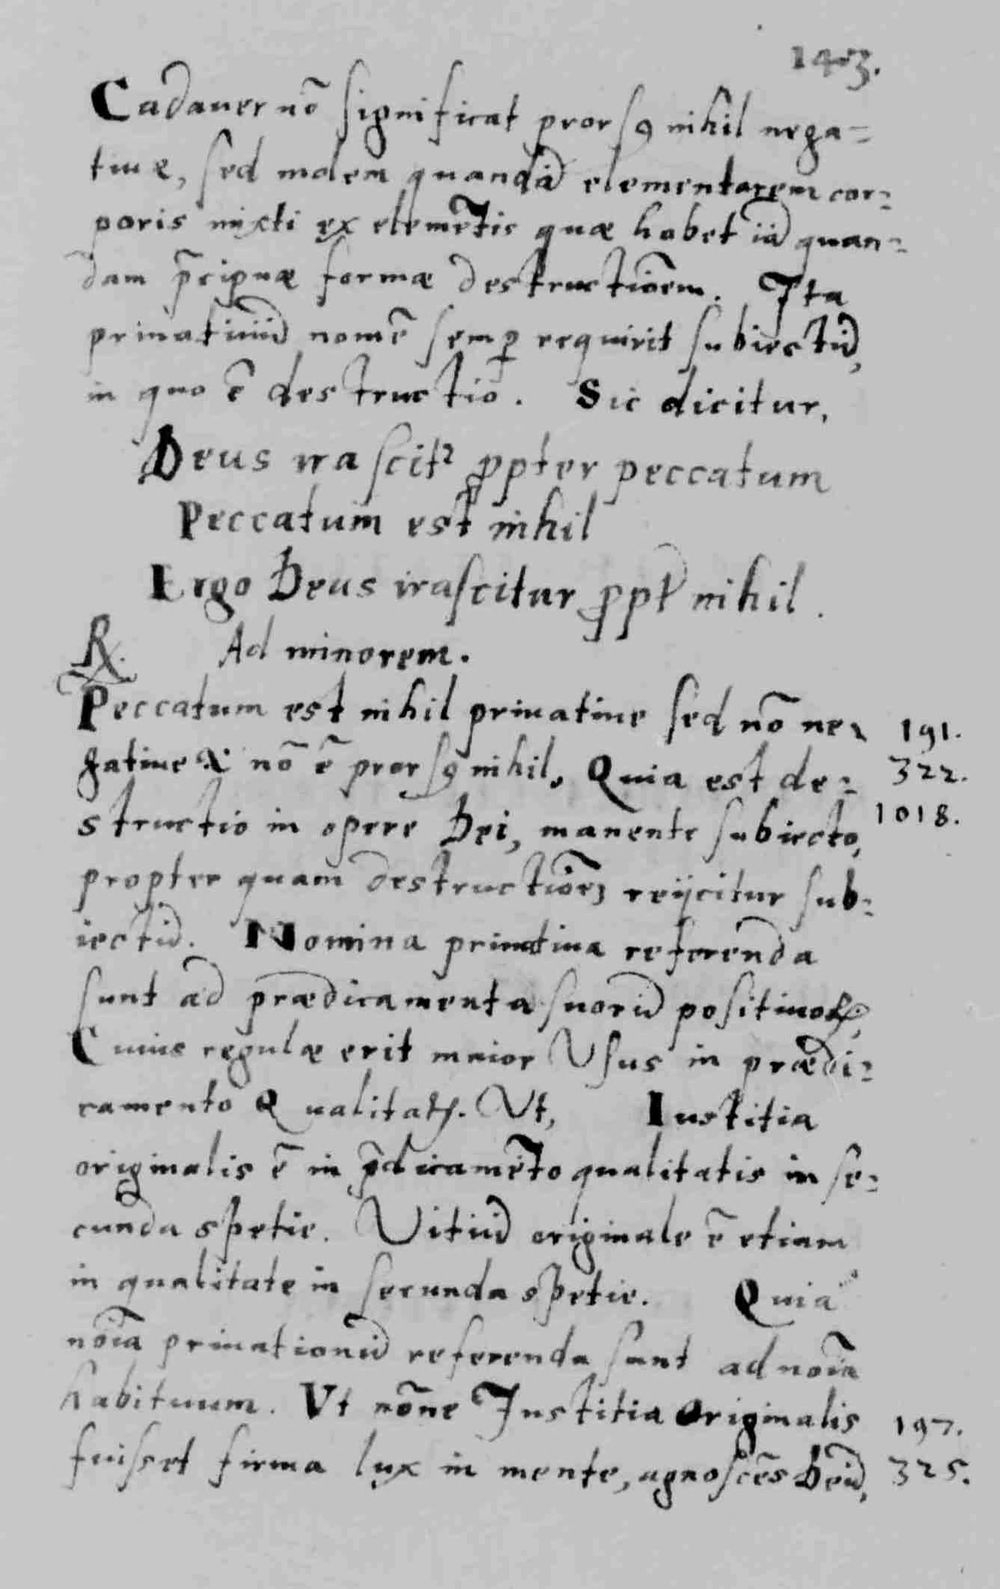 1403.
Cadauer nō significat prorsꝰ nihil nega=
tiuæ, sed molem quandā elementarem cor=
poris mixti ex elemētis quæ habet iā quan=
dam p̄cipuæ formæ destructiōem. Ita
priuatiuū nomē semꝑ requirit subiectū,
in quo ē destructio. Sic dicitur,
Deus irascitꝛ ꝓpter peccatum
Peccatum est nihil
Ergo Deus irascitur ꝓpt nihil.
℞. Ad minorem.
Peccatum est nihil priuatiue sed nō ne=
gatiue & nō ē prorsꝰ nihil. Quia est de=
structio in opere Dei, manente subiecto,
propter quam destructiōeꝫ reijcitur sub=
iectū. Nomina priuatiua referenda
sunt ad prædicamenta suorū positiuoꝝ,
Cuius regulæ erit maior Usus in prædi=
camento Qualitatꝭ. Ut, Iustitia
originalis ē in p̄dicamēto qualitatis in se=
cunda spetie. Uitiū originale ē etiam
in qualitate in secunda spetie. Quia
noīa priuationū referenda sunt ad noīa
habituum. Vt nōne Iustitia originalis
fuisset firma lux in mente, agnoscēs Deū,
191.
322.
1018.
197.
325.